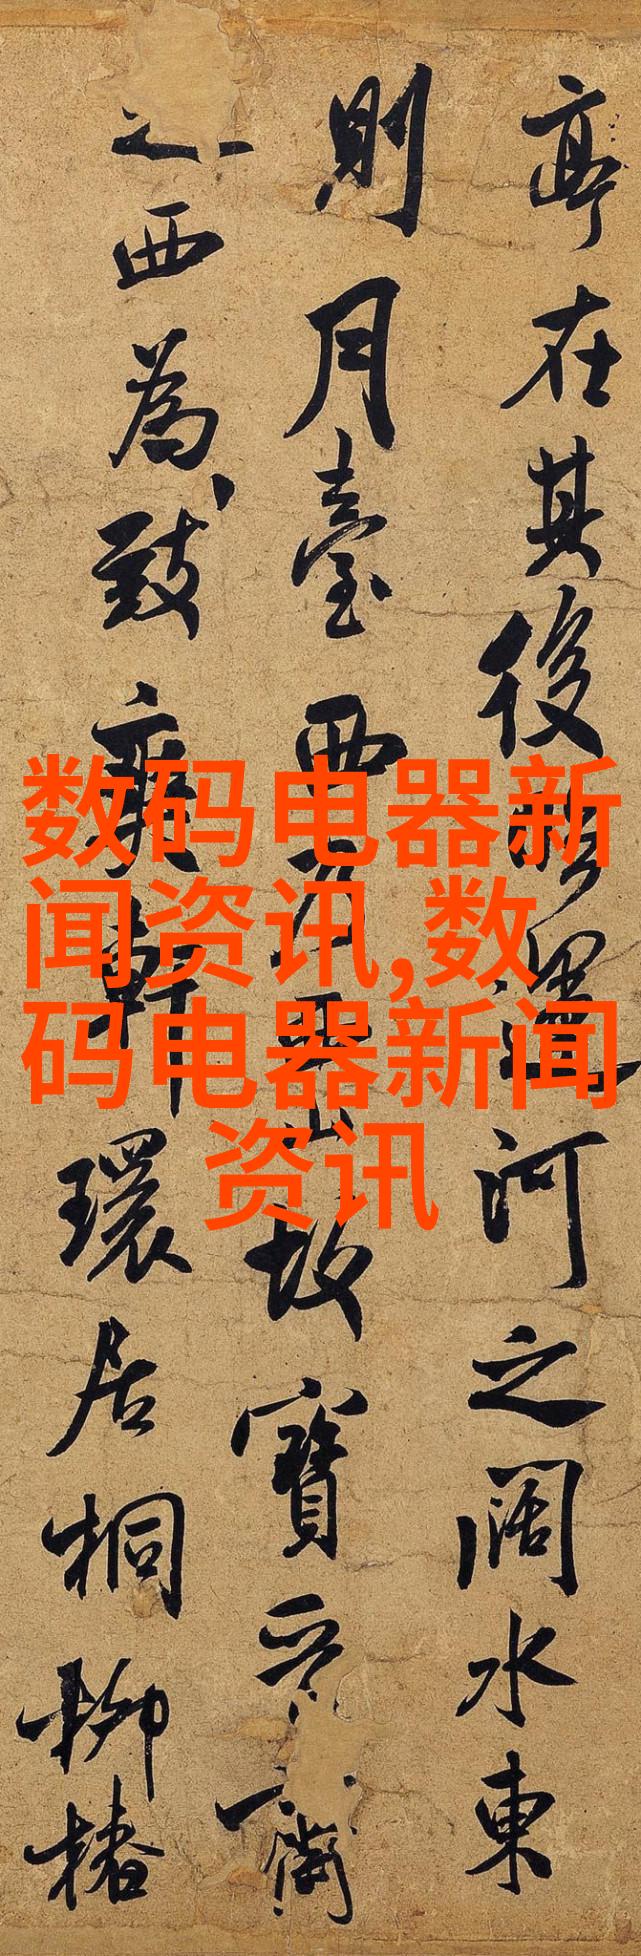 亭在其後
河之闊水東
則月臺西
故寶晉齋
之西為致爽軒環居桐柳椿
数码电器新
闻资讯,数
码电器新闻
资讯